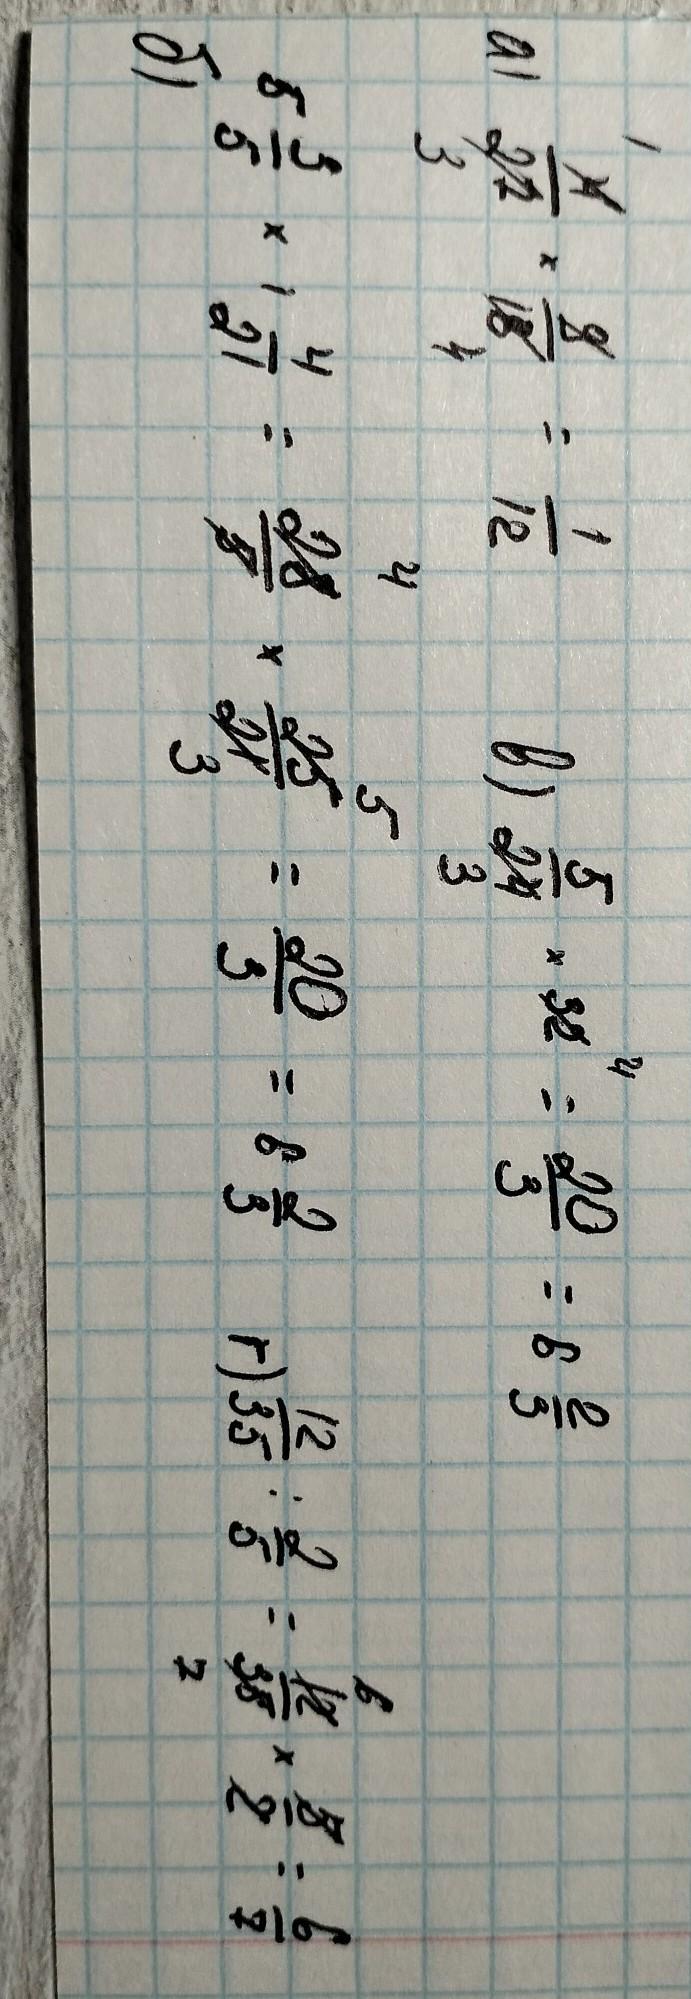 а) 4/27 × 9/16 = 1/12 в) 5/24 × 32 = 20/3 = 6 2/3
б) 5 3/5 × 1 4/21 = 28/5 × 25/21 = 20/3 = 6 2/3 г) 12/35 : 2/5 = 12/35 × 5/2 = 6/7